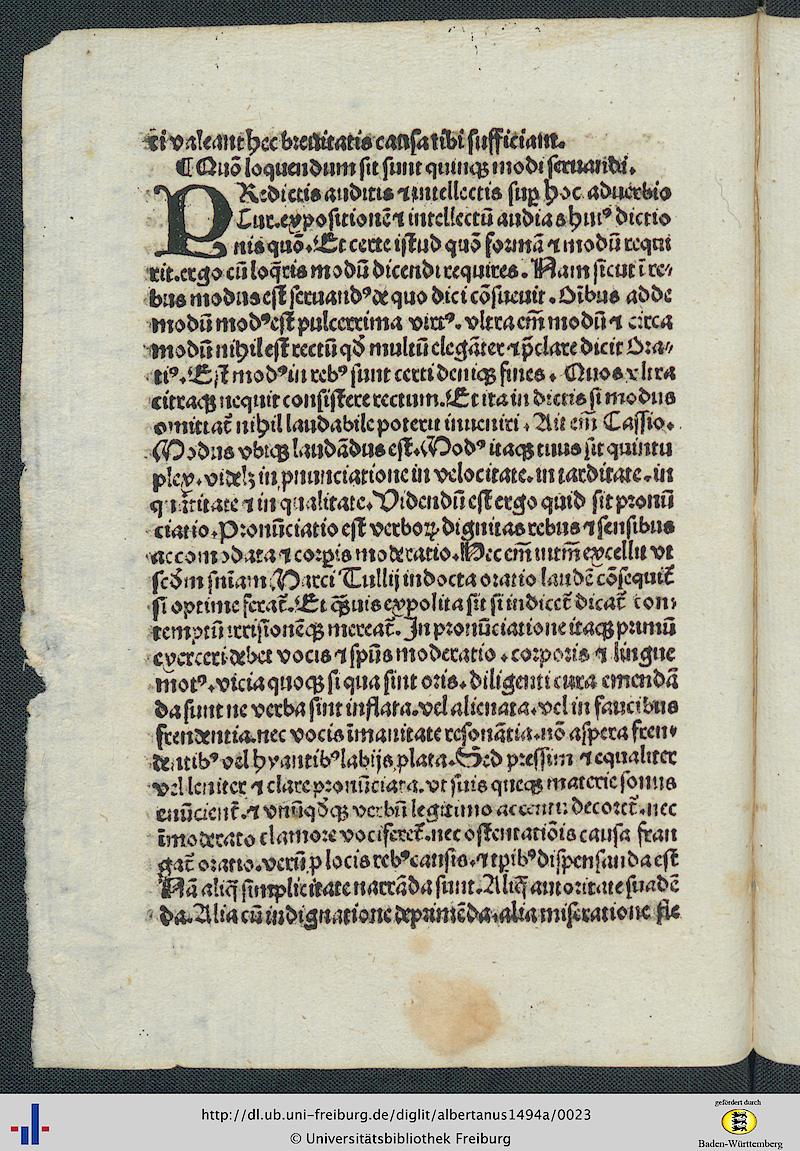 ti valeant hec breuitatis causa tibi sufficiant.
¶ Quō loquendum sit sunt quinqꝫ modi seruandi.
PRedictis auditis ⁊ intellectis suꝑ hoc aduerbio
Cur. expositionē ⁊ intellectū audias huiꝰ dictio
nis quō. Et certe istud quō formā ⁊ modū requi
rit. ergo cū loq̄ris modū dicendi requires. Nam sicut ī re⸗
bus modus est seruandꝰ de quo dici cōsueuit. Oībus adde
modū modꝰ est pulcerrima virtꝰ. vltra em̄ modū ⁊ circa
modū nihil est rectū qd̄ multū elegāter ⁊ p̄clare dicit Ora⸗
tiꝰ. Est modꝰ in rebꝰ sunt certi deniqꝫ fines. Quos vltra
citraqꝫ nequit consistere rectum. Et ita in dictis si modus
omittat̄ nihil laudabile poterit inueniri. Ait em̄ Cassio.
Modus vbiqꝫ laudādus est. Modꝰ itaqꝫ tuus sit quintu
plex. videlꝫ in ꝓnunciatione in velocitate. in tarditate. in
quātitate ⁊ in qualitate. Videndū est ergo quid sit pronū
ciatio. Pronūciatio est verboꝝ dignitas rebus ⁊ sensibus
accomodata ⁊ corꝑis moderatio. Hec em̄ intm̄ excellit vt
scd̄m sn̄iam Marci Tullij indocta oratio laudē cōsequit̄
si optime ferat̄. Et q̄̄uis expolita sit si indicet̄ dicat̄ con⸗
temptū irrisionēqꝫ mereat̄. In pronūciatione itaqꝫ primū
exerceri debet vocis ⁊ spūs moderatio. corporis ⁊ lingue
motꝰ. vicia quoqꝫ si qua sint oris. diligenti cura emendā
da sunt ne verba sint inflata. vel alienata. vel in faucibus
frendentia. nec vocis īmanitate resonātia. nō aspera fren⸗
dentibꝰ vel hyantibꝰ labijs ꝓlata. Sed pressim ⁊ equaliter
vel leniter ⁊ clare pronūciata. vt suis queqꝫ materie sonus
enūcient̄. ⁊ vnūqd̄qꝫ verbū legitimo accentu decoret̄. nec
īmoderato clamore vociferet̄. nec ostentatiōis causa fran
gat̄ oratio. verū ꝓ locis rebꝰ causis. ⁊ tꝑibꝰ dispensanda est
Nā aliq̄ simplicitate narrāda sunt. Aliq̄ autoritate suadē
da. Alia cū indignatione deprimēda. alia miseratione fle
http://dl.ub.uni-freiburg.de/diglit/albertanus1494a/0023
© Universitätsbibliothek Freiburg
gefördert durch
Baden-Württemberg